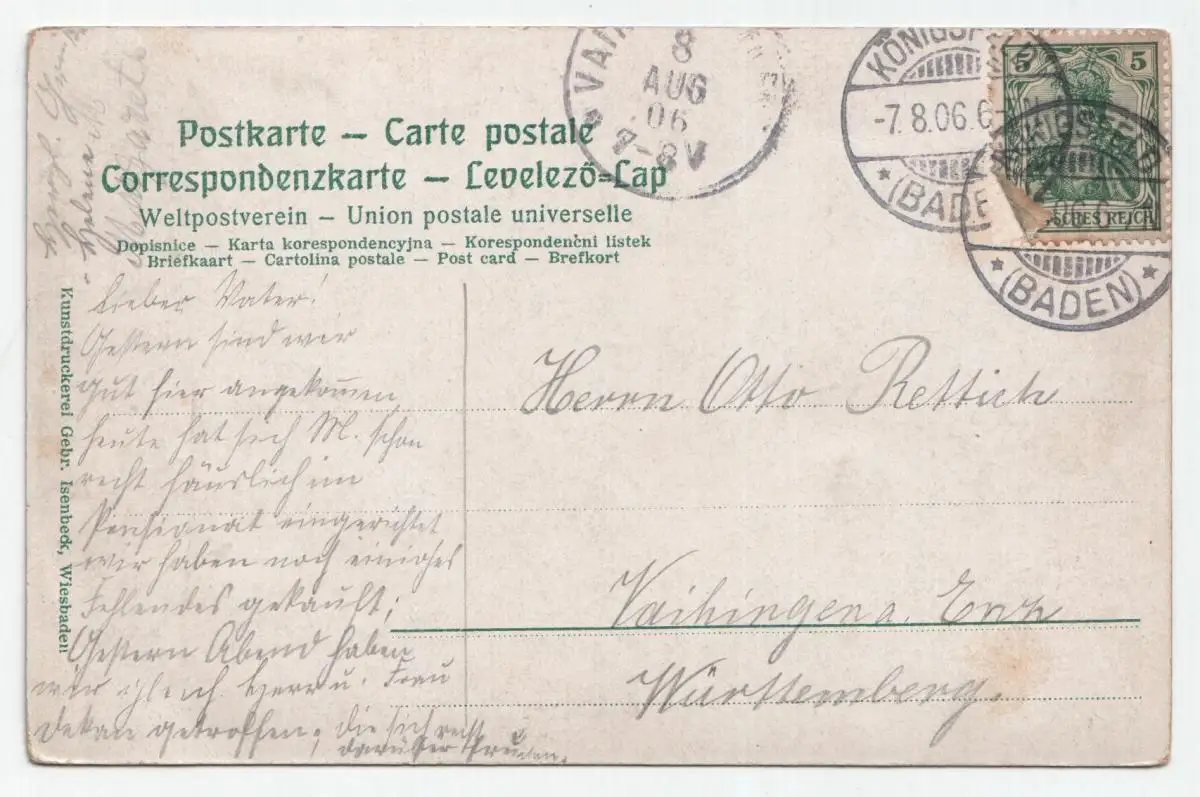 Postkarte — Carte postale
Correspondenzkarte — Levelező=Lap
Weltpostverein — Union postale universelle
Dopisnice — Karta korespondencyjna — Korespondenční listek
Briefkaart — Cartolina postale — Post card — Brefkort
VAIH
8
AUG
06
7-8V
KÖNIGSFELD
-7.8.06.6-
(BADEN)
5 5
SCHES REICH
KÖNIGSFELD
(BADEN)
Lieber Vater!
Gestern sind wir
gut hier angekommen,
heute hat sich M. schon
recht häuslich im
Pensionat eingerichtet
wir haben noch einiges
Fehlendes gekauft;
Gestern Abend haben
wir gleich Herr u. Frau
Dekan getroffen, die sich recht
darüber freuen.
Helene u.
Margarete
Herrn Otto Rettich
Vaihingen a. Enz
Württemberg.
Kunstdruckerei Gebr. Isenbeck, Wiesbaden